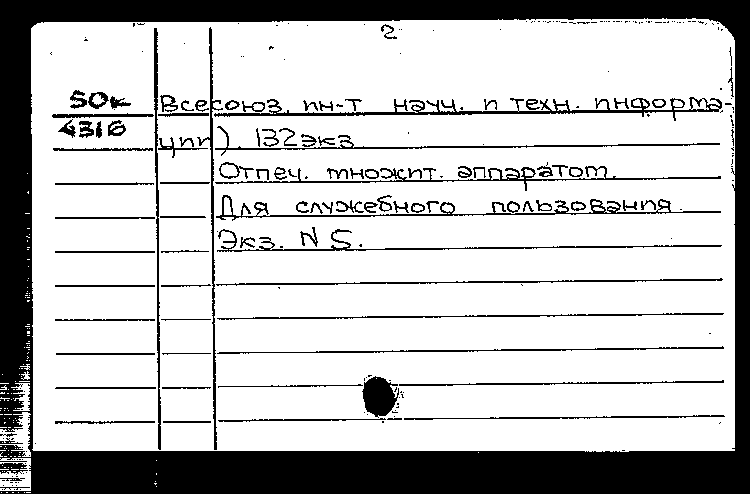 2
50к Всесоюз. ин-т науч. и техн. информа-
4316 ции). 132экз
Отпеч. множит. аппаратом.
Для служебного пользования.
Экз. N 5.